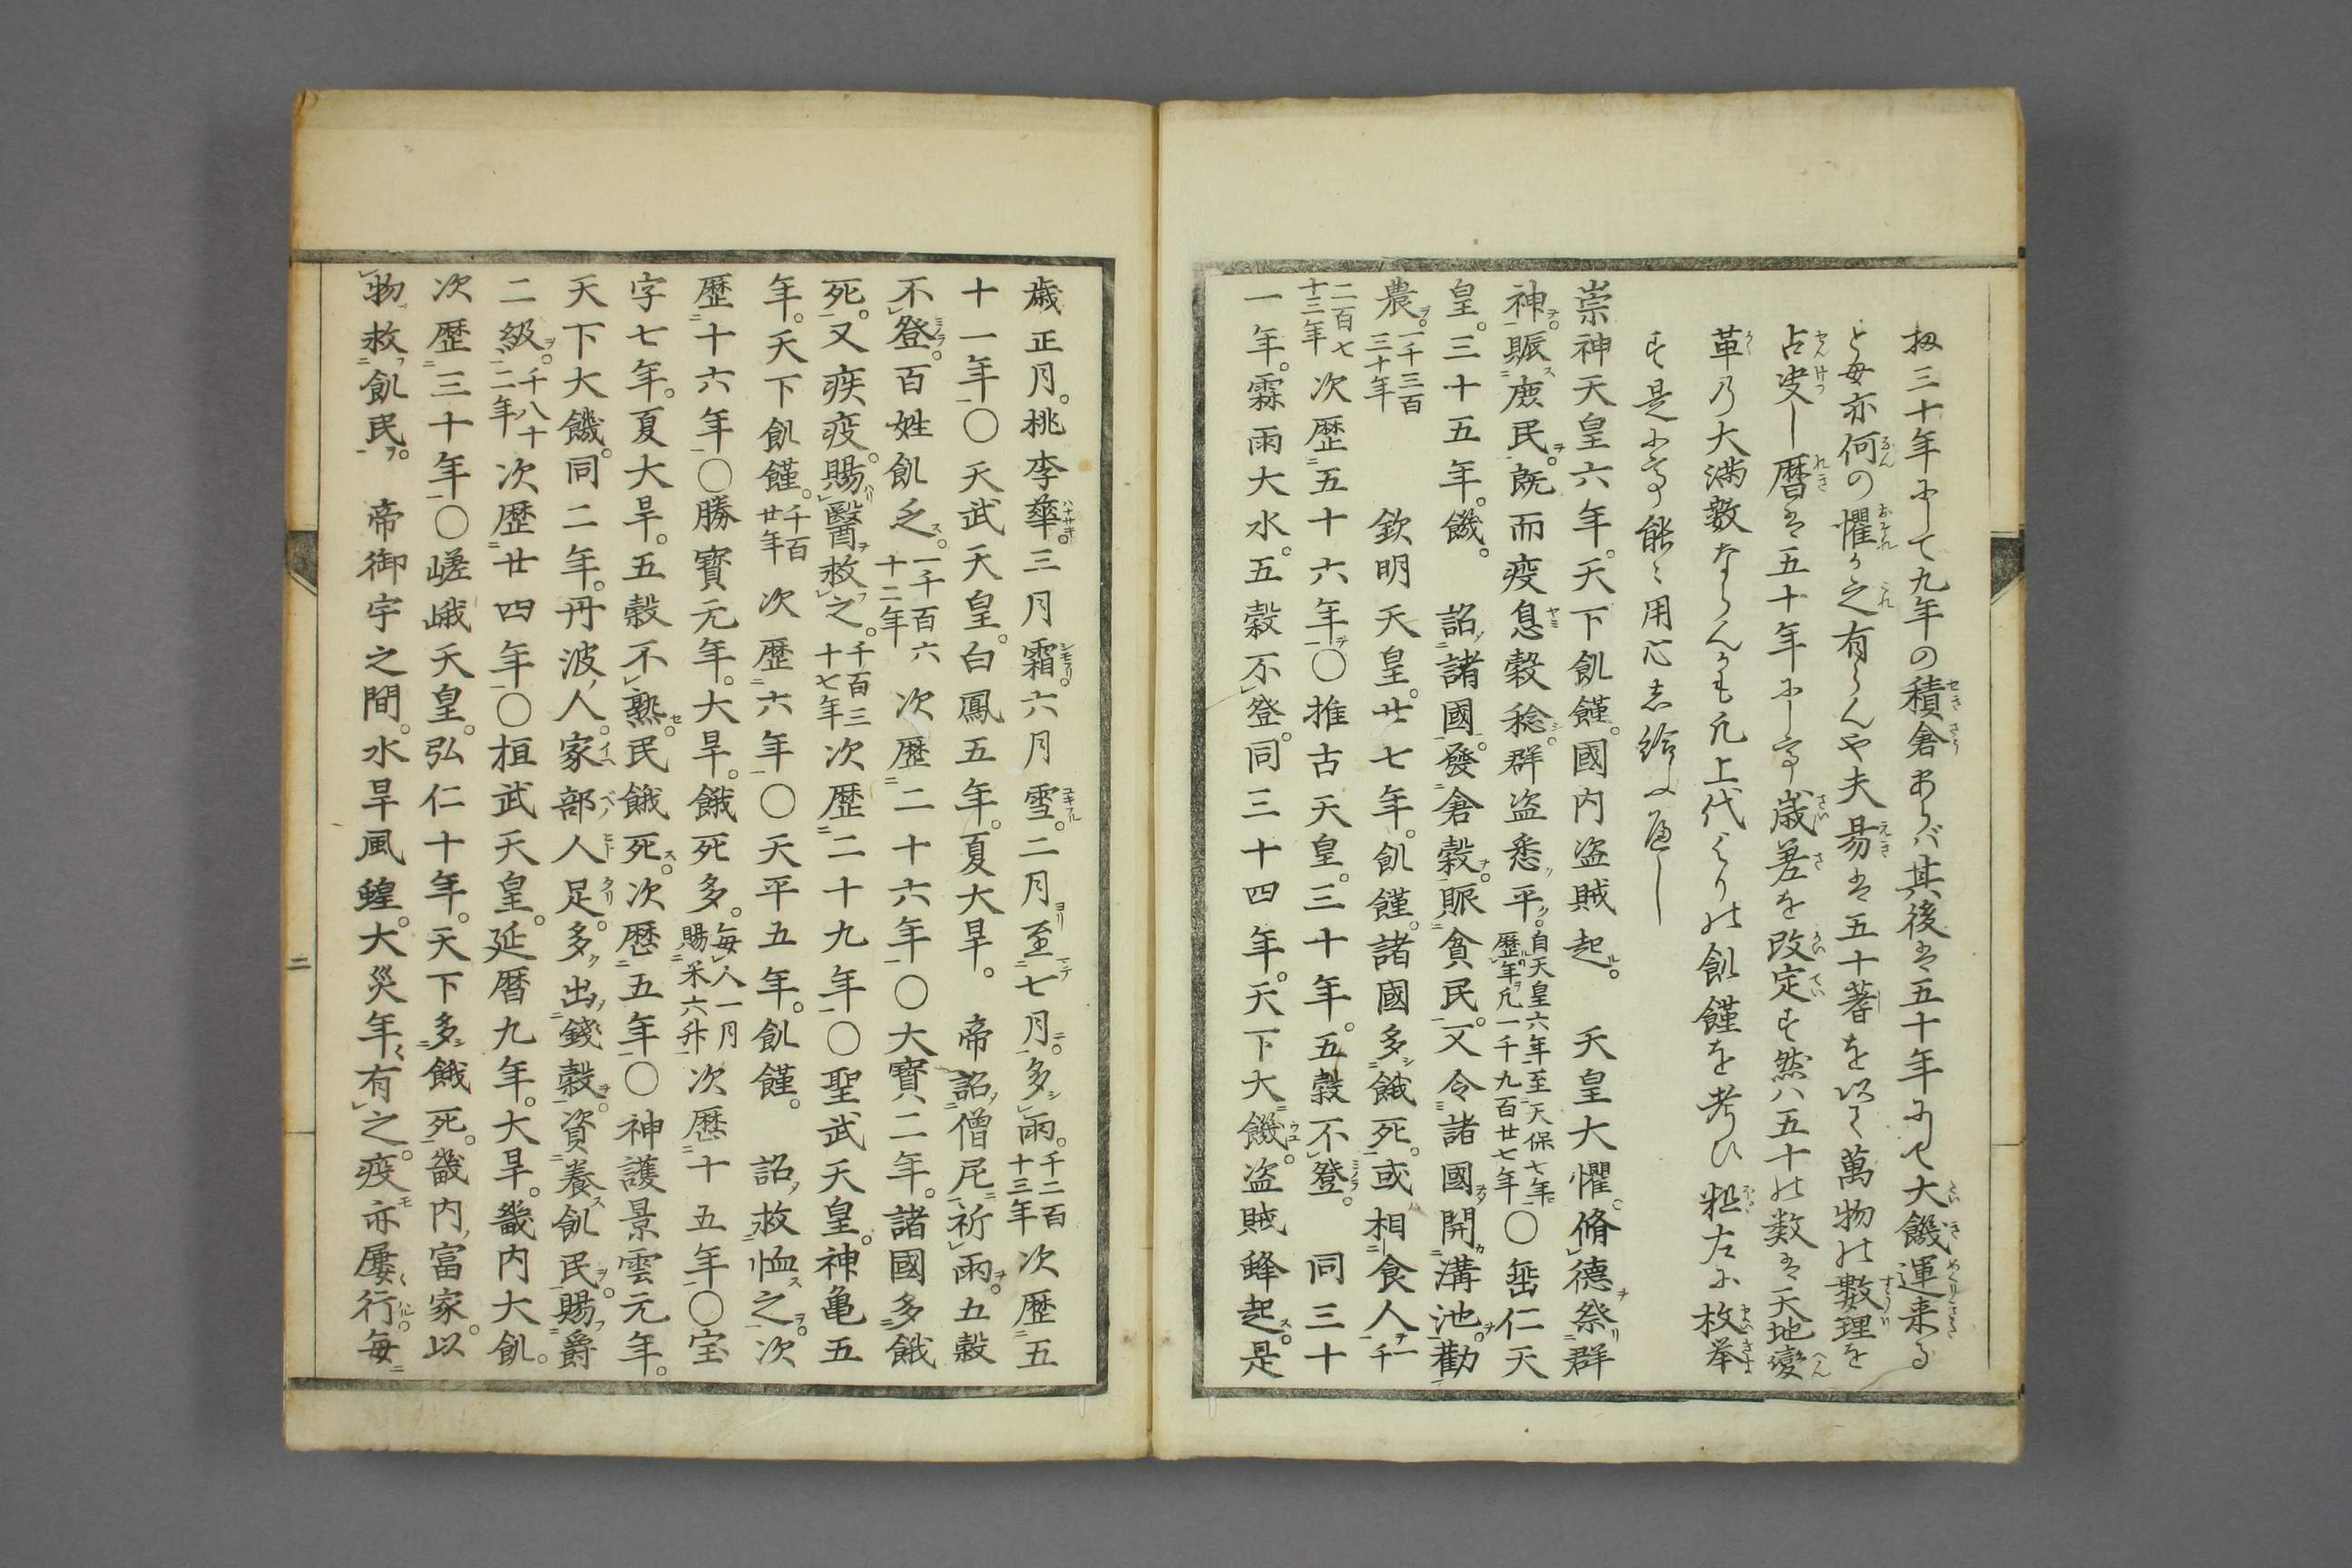 扨三十年にして九年の積倉あらバ其後は五十年にして大饑運来る
と毎亦何の懼か之有らんや夫昜は五十蓍を以て萬物の數理を
占決し暦は五十年にし而歳差を改定す然ハ五十の数は天地變
革の大満數ならんかも凡上代よりの飢饉を考ひ粗左に枚挙
す是に而能々用心志給ふ應し
崇神天皇六年。天下飢饉。國内盗賊起。　天皇大懼。脩德祭群
神。賑鹿民。既而疫息穀稔。群盗悉平。自天皇六年至天保七年
歴年凡一千九百廿七年〇垂仁天
皇。三十五年。饑。　詔諸國。發倉穀。賑貧民。又令諸國開溝池。勸
農。一千三百
三十年　欽明天皇。廿七年。飢饉。諸國多餓死。或相食人一千
二百七
十三年次歴五十六年〇推古天皇。三十年。五穀不登。　同三十
一年。霖雨大水。五穀不登。同三十四年。天下大饑。盗賊蜂起。是
歳正月。桃李華。三月霜。六月雪。二月至七月。多雨。千二百
十三年次歴五
十一年〇天武天皇。白鳳五年。夏大旱。　帝詔僧尼祈雨。五穀
不登。百姓飢乏。一千百六
十二年　次歴二十六年〇大寶二年。諸國多餓
死。又疾疫。賜醫救之。千百三
十七年次歴二十九年〇聖武天皇。神亀五
年。天下飢饉。千百
廿年　次歴六年〇天平五年。飢饉。　詔救恤之。次
歴十六年〇勝寳元年。大旱。餓死多。毎人一月
賜米六升次歴十五年〇宝
字七年。夏大旱。五穀不熟。民餓死。次歴五年〇神護景雲元年。
天下大饑。同二年。丹波人。家部人足。多出錢穀。資養飢民。賜爵
二級。千八十
二年次歴廿四年〇桓武天皇。延暦九年。大旱。畿内大飢。
次歴三十年〇嵯峨天皇。弘仁十年。天下多餓死。畿内富家。以
物救飢民。　帝御宇之間。水旱風蝗。大災年有之。疫亦屢行。毎
二